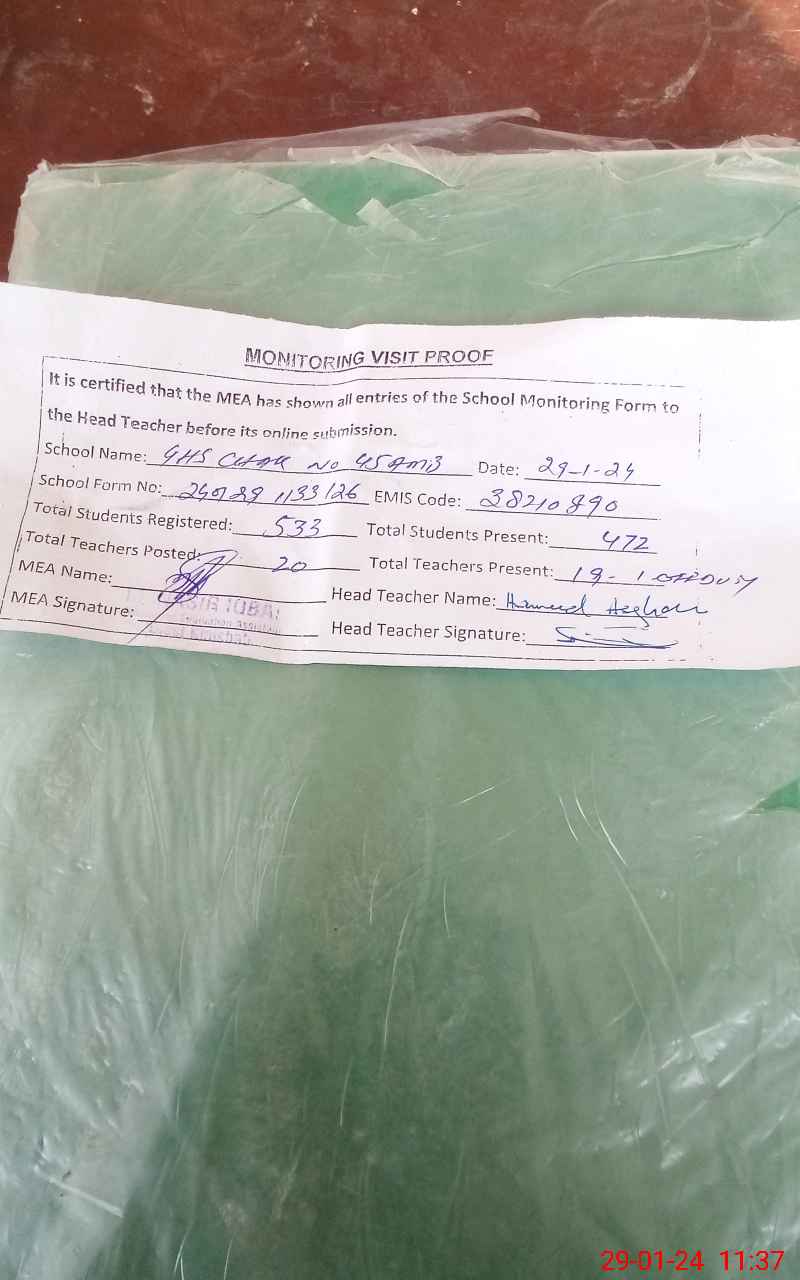 MONITORING VISIT PROOF
It is certified that the MEA has shown all entries of the School Monitoring Form to
the Head Teacher before its online submission.
School Name: GHS Chak No 45 Date: 29-1-24
School Form No: EMIS Code: 38210890
Total Students Registered: 533 Total Students Present: 472
Total Teachers Posted: 20 Total Teachers Present: 19-1 off Duty
MEA Name: Head Teacher Name:
MEA Signature: Head Teacher Signature:
29-01-24 11:37